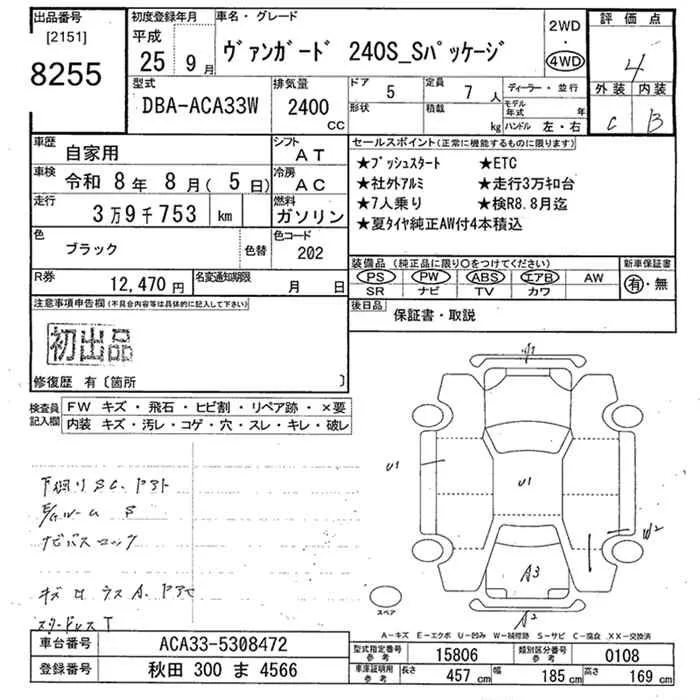 出品番号
[2151]
8255
初度登録年月
平成
25 9 月
車名・グレード
ヴァンガード 240S_Sパッケージ
2WD
・
4WD
評価点
4
外装 内装
C B
型式
DBA-ACA33W
排気量
2400
CC
ドア 5
形状
定員 7 人
積載 kg
ディーラー・並行
モデル年式 年
ハンドル 左・右
車歴 自家用
シフト AT
車検 令和 8年 8月( 5日)
冷房 AC
走行 3万9千753 km
燃料 ガソリン
色 ブラック 色替
色コード 202
R券 12,470 円
名変通知期限 月 日
セールスポイント(正常に機能するものに限ります)
★プッシュスタート ★ETC
★社外アルミ ★走行3万キロ台
★7人乗り ★検R8.8月迄
★夏タイヤ純正AW付4本積込
装備品 (純正品に限り○をつけてください)
新車保証書
PS PW ABS エアB AW
SR ナビ TV カワ
有・無
後日品 保証書・取説
注意事項申告欄(不具合内容等は具体的に記入して下さい)
初出品
修復歴 有〔箇所 〕
検査員記入欄
FW キズ・飛石・ヒビ割・リペア跡・×要
内装 キズ・汚レ・コゲ・穴・スレ・キレ・破レ
U1
U1
W2
A3
A2
スペア
A-キズ E-エクボ U-凹み W-補修跡 S-サビ C-腐食 XX-交換済
車台番号 ACA33-5308472
登録番号 秋田 300 ま 4566
型式指定番号 参考 15806
類別区分番号 参考 0108
車庫証明用 参考
長さ 457 cm
幅 185 cm
高さ 169 cm